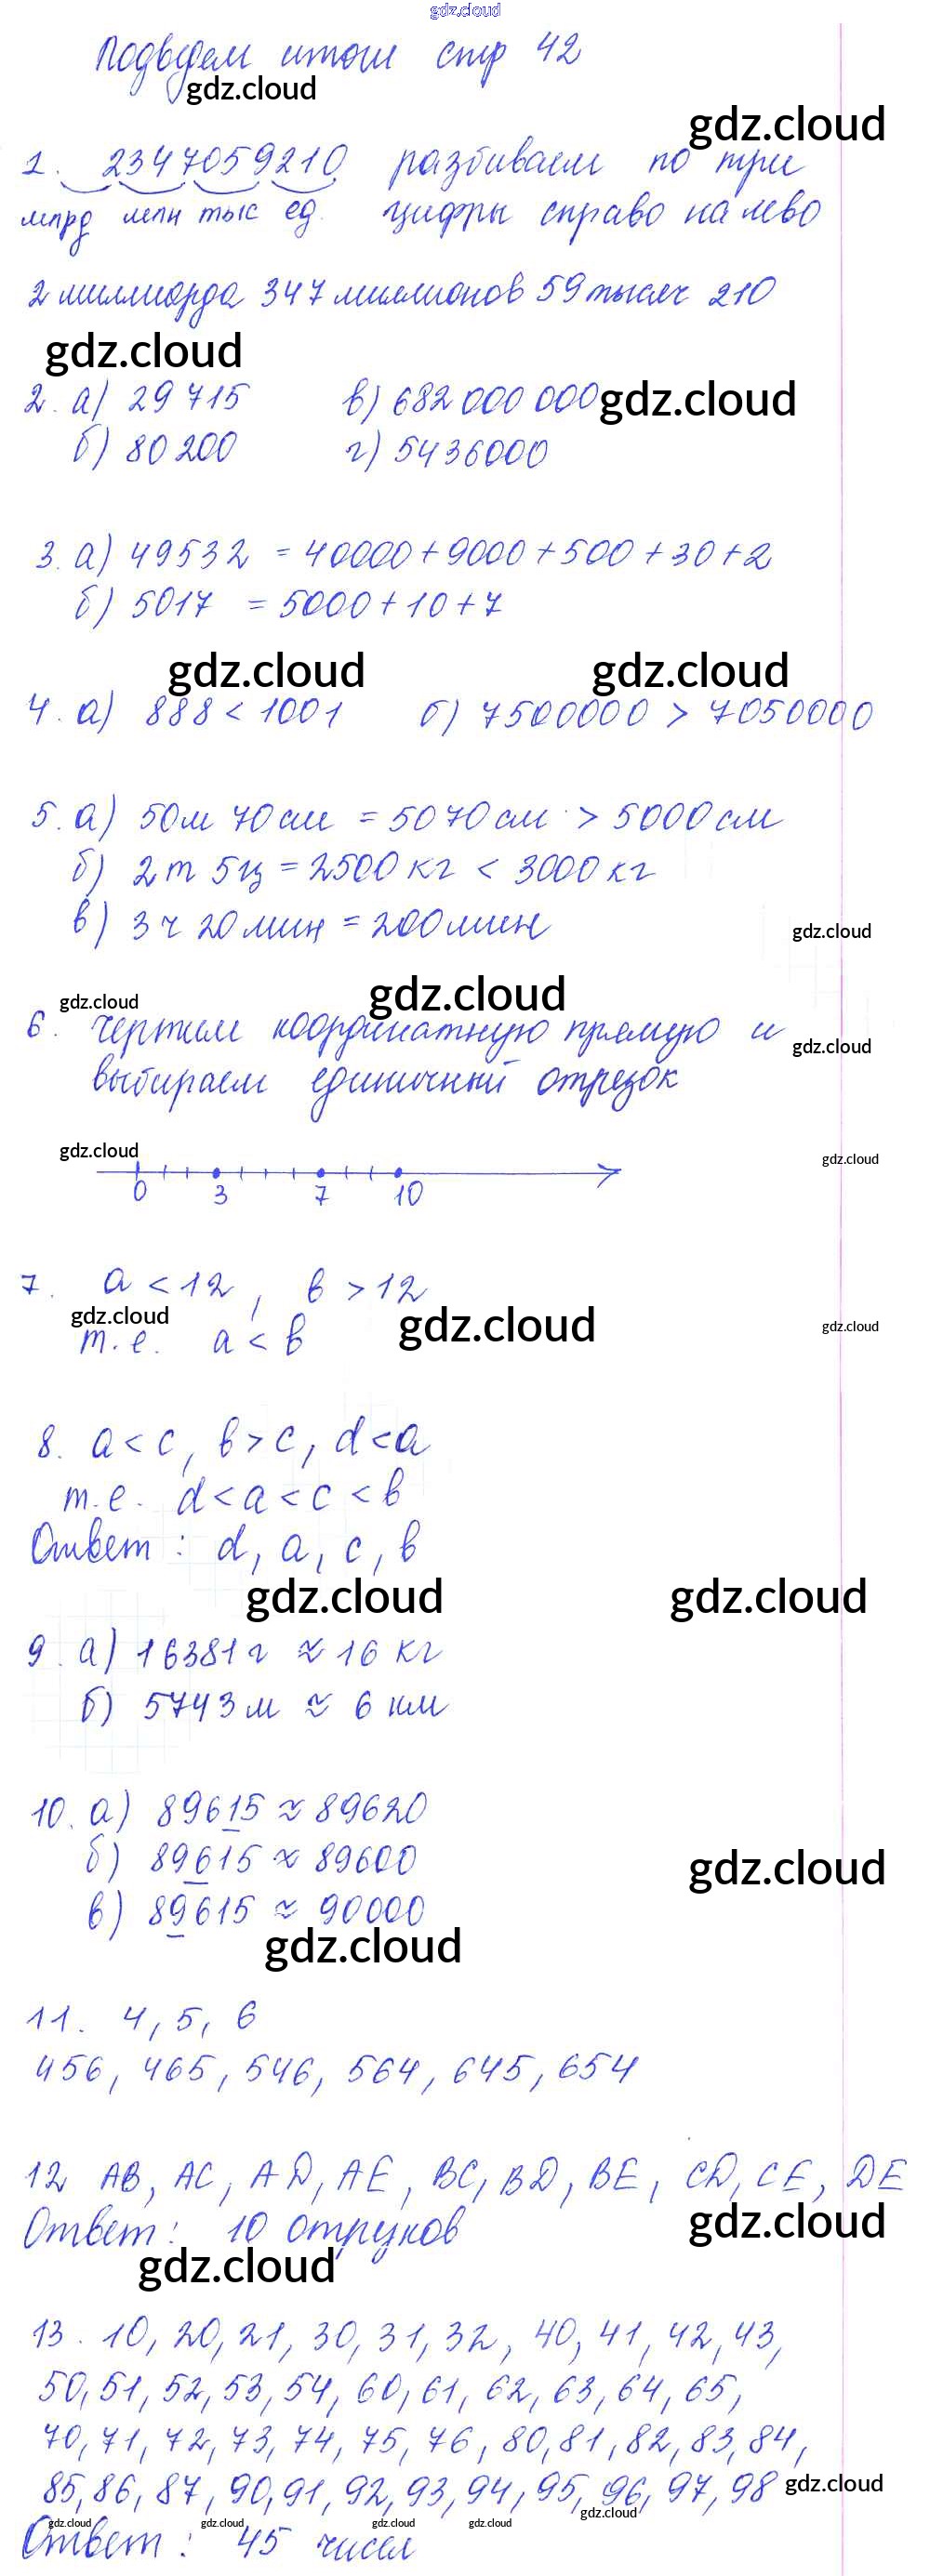 gdz.cloud
Подведем итоги стр 42
gdz.cloud
gdz.cloud
1. 2347059210 разбиваем по три
млрд млн тыс ед. цифры справо на лево
2 миллиарда 347 миллионов 59 тысяч 210
gdz.cloud
2. а) 29 715 в) 682 000 000 gdz.cloud
б) 80 200 г) 5436000
3. а) 49532 = 40000 + 9000 + 500 + 30 + 2
б) 5017 = 5000 + 10 + 7
gdz.cloud gdz.cloud
4. а) 888 < 1001 б) 7500000 > 7050000
5. а) 50м 70см = 5070 см > 5000 см
б) 2т 5ц = 2500 кг < 3000 кг
в) 3 ч 20 мин = 200 мин
gdz.cloud
gdz.cloud gdz.cloud
6. Чертим координатную прямую и
gdz.cloud
выбираем единичный отрезок
gdz.cloud gdz.cloud
0 3 7 10
7. a < 12, b > 12
gdz.cloud gdz.cloud gdz.cloud
т.е. a < b
8. a < c, b > c, d < a
т.е. d < a < c < b
Ответ: d, a, c, b
gdz.cloud gdz.cloud
9. а) 16381 г ≈ 16 кг
б) 5743 м ≈ 6 км
10. а) 89615 ≈ 89620
б) 89615 ≈ 89600
gdz.cloud
в) 89615 ≈ 90000
gdz.cloud
11. 4, 5, 6
456, 465, 546, 564, 645, 654
12 AB, AC, AD, AE, BC, BD, BE, CD, CE, DE
Ответ: 10 отрезков
gdz.cloud
gdz.cloud
13. 10, 20, 21, 30, 31, 32, 40, 41, 42, 43,
50, 51, 52, 53, 54, 60, 61, 62, 63, 64, 65,
70, 71, 72, 73, 74, 75, 76, 80, 81, 82, 83, 84,
85, 86, 87, 90, 91, 92, 93, 94, 95, 96, 97, 98 gdz.cloud
gdz.cloud
gdz.cloud gdz.cloud gdz.cloud gdz.cloud
Ответ: 45 чисел